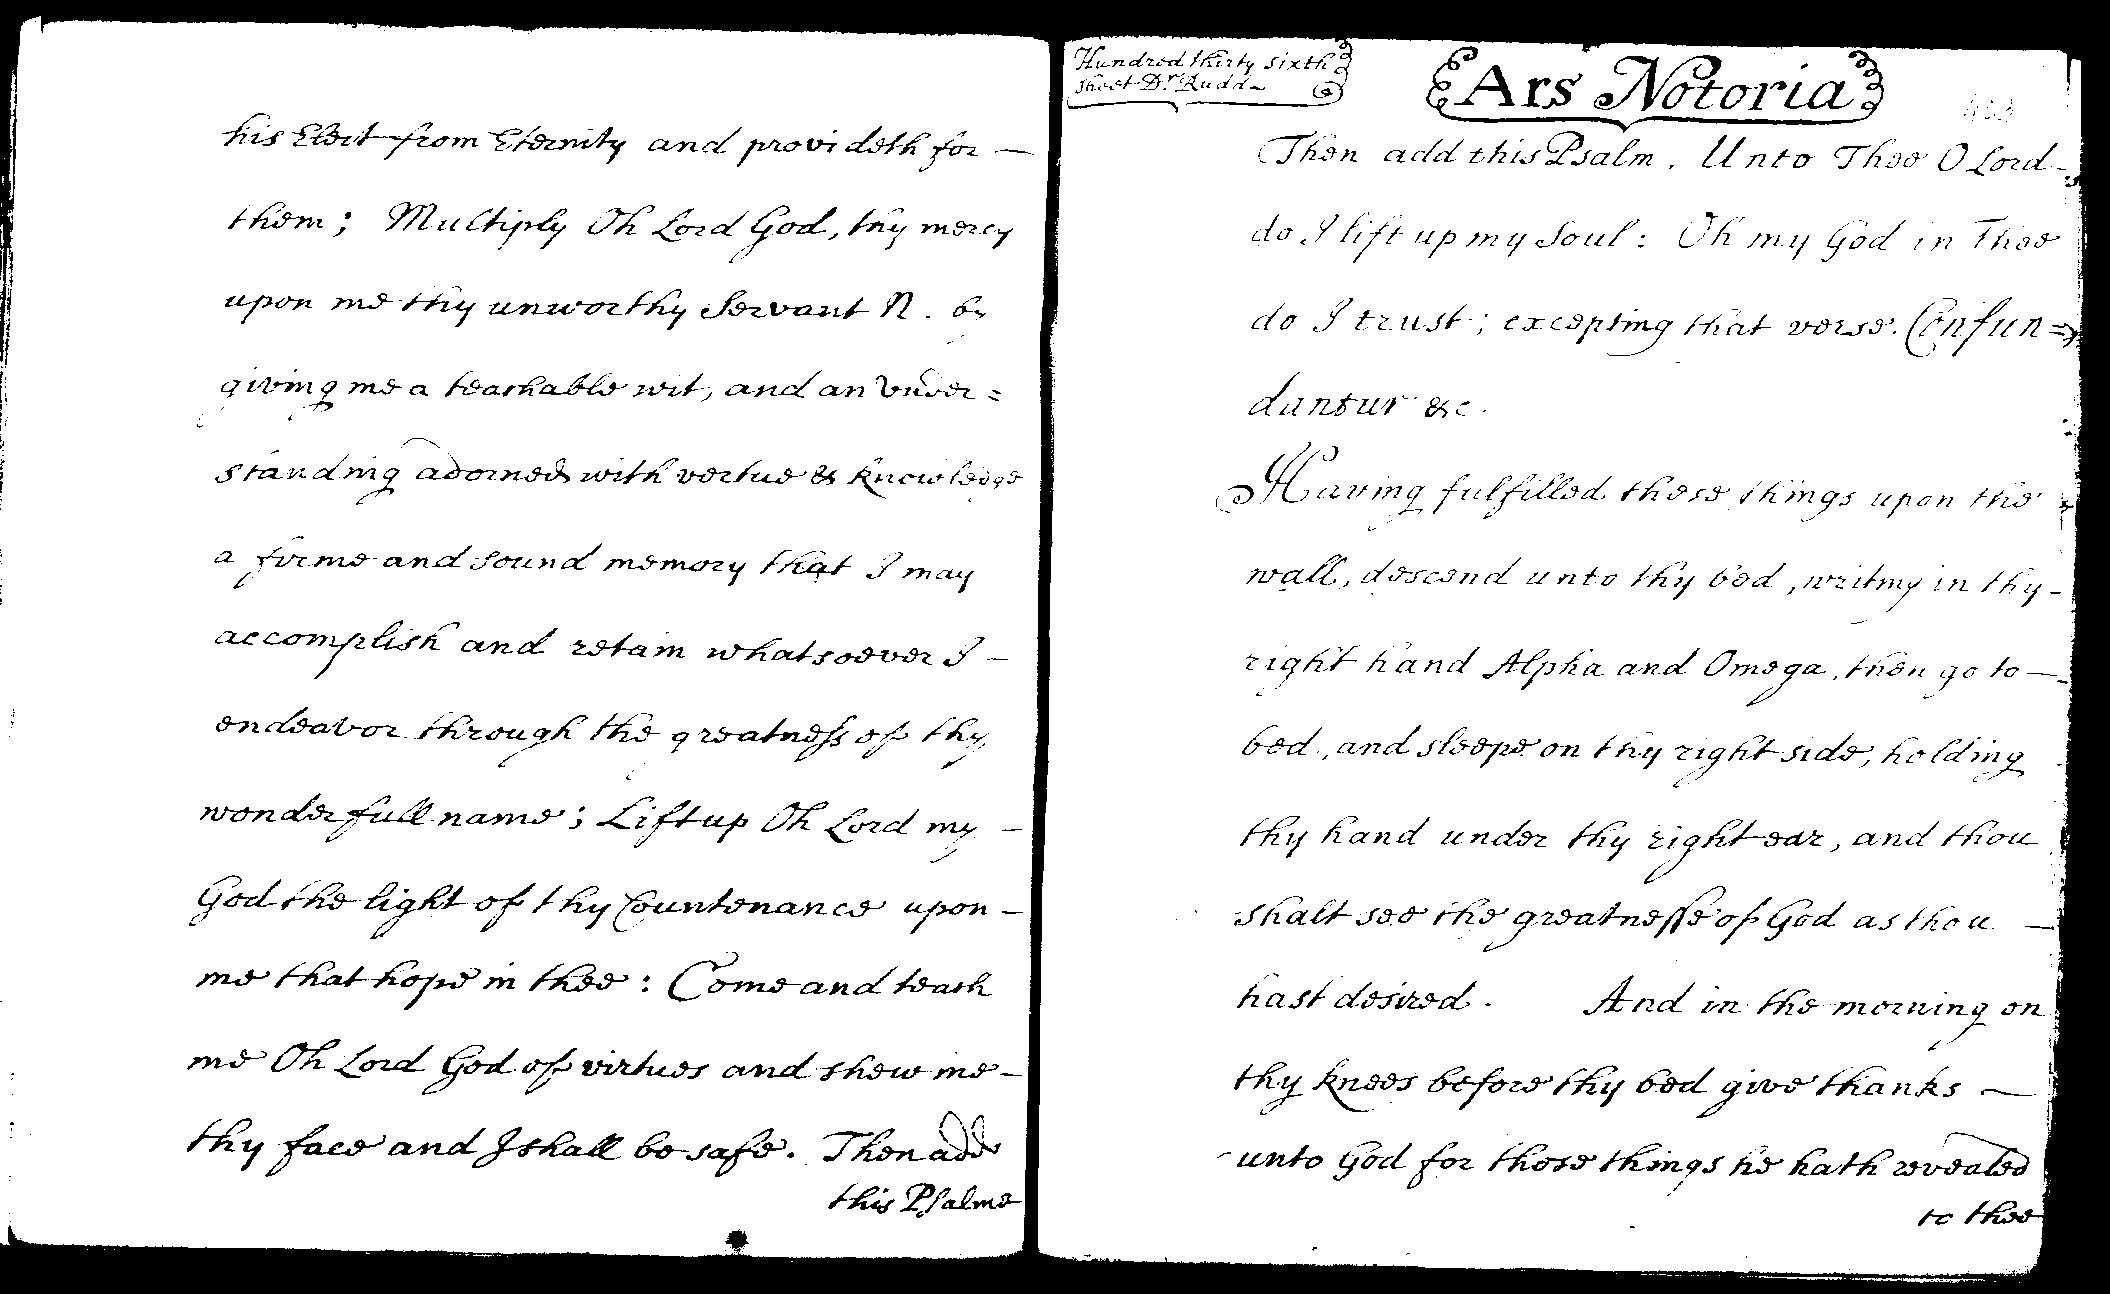 his Elect from Eternity and provideth for —
them; Multiply Oh Lord God, thy mercy
upon me thy unworthy Servant N. by
giving me a teachable wit, and an Vnder=
standing adorned with vertue & knowledge
a firme and sound memory that I may
accomplish and retain whatsoever I —
endeavor through the greatness of thy
wonderfull name; Lift up Oh Lord my —
God the light of thy Countenance upon —
me that hope in thee: Come and teach
me Oh Lord God of virtues and shew me —
thy face and I shall be safe. Then add
this Psalme
Hundred thirty sixth
sheet Dr. Rudd
Ars Notoria
Then add this Psalm. Unto Thee O Lord
do I lift up my Soul: Oh my God in Thee
do I trust; excepting that verse. Confun=
dantur &c.
Having fulfilled these things upon the
wall, descend unto thy bed, writing in thy —
right hand Alpha and Omega, then go to —
bed, and sleepe on thy right side, holding
thy hand under thy right ear, and thou
shalt see the greatnesse of God as thou —
hast desired. And in the morning on
thy knees before thy bed give thanks —
unto God for those things he hath revealed
to thee